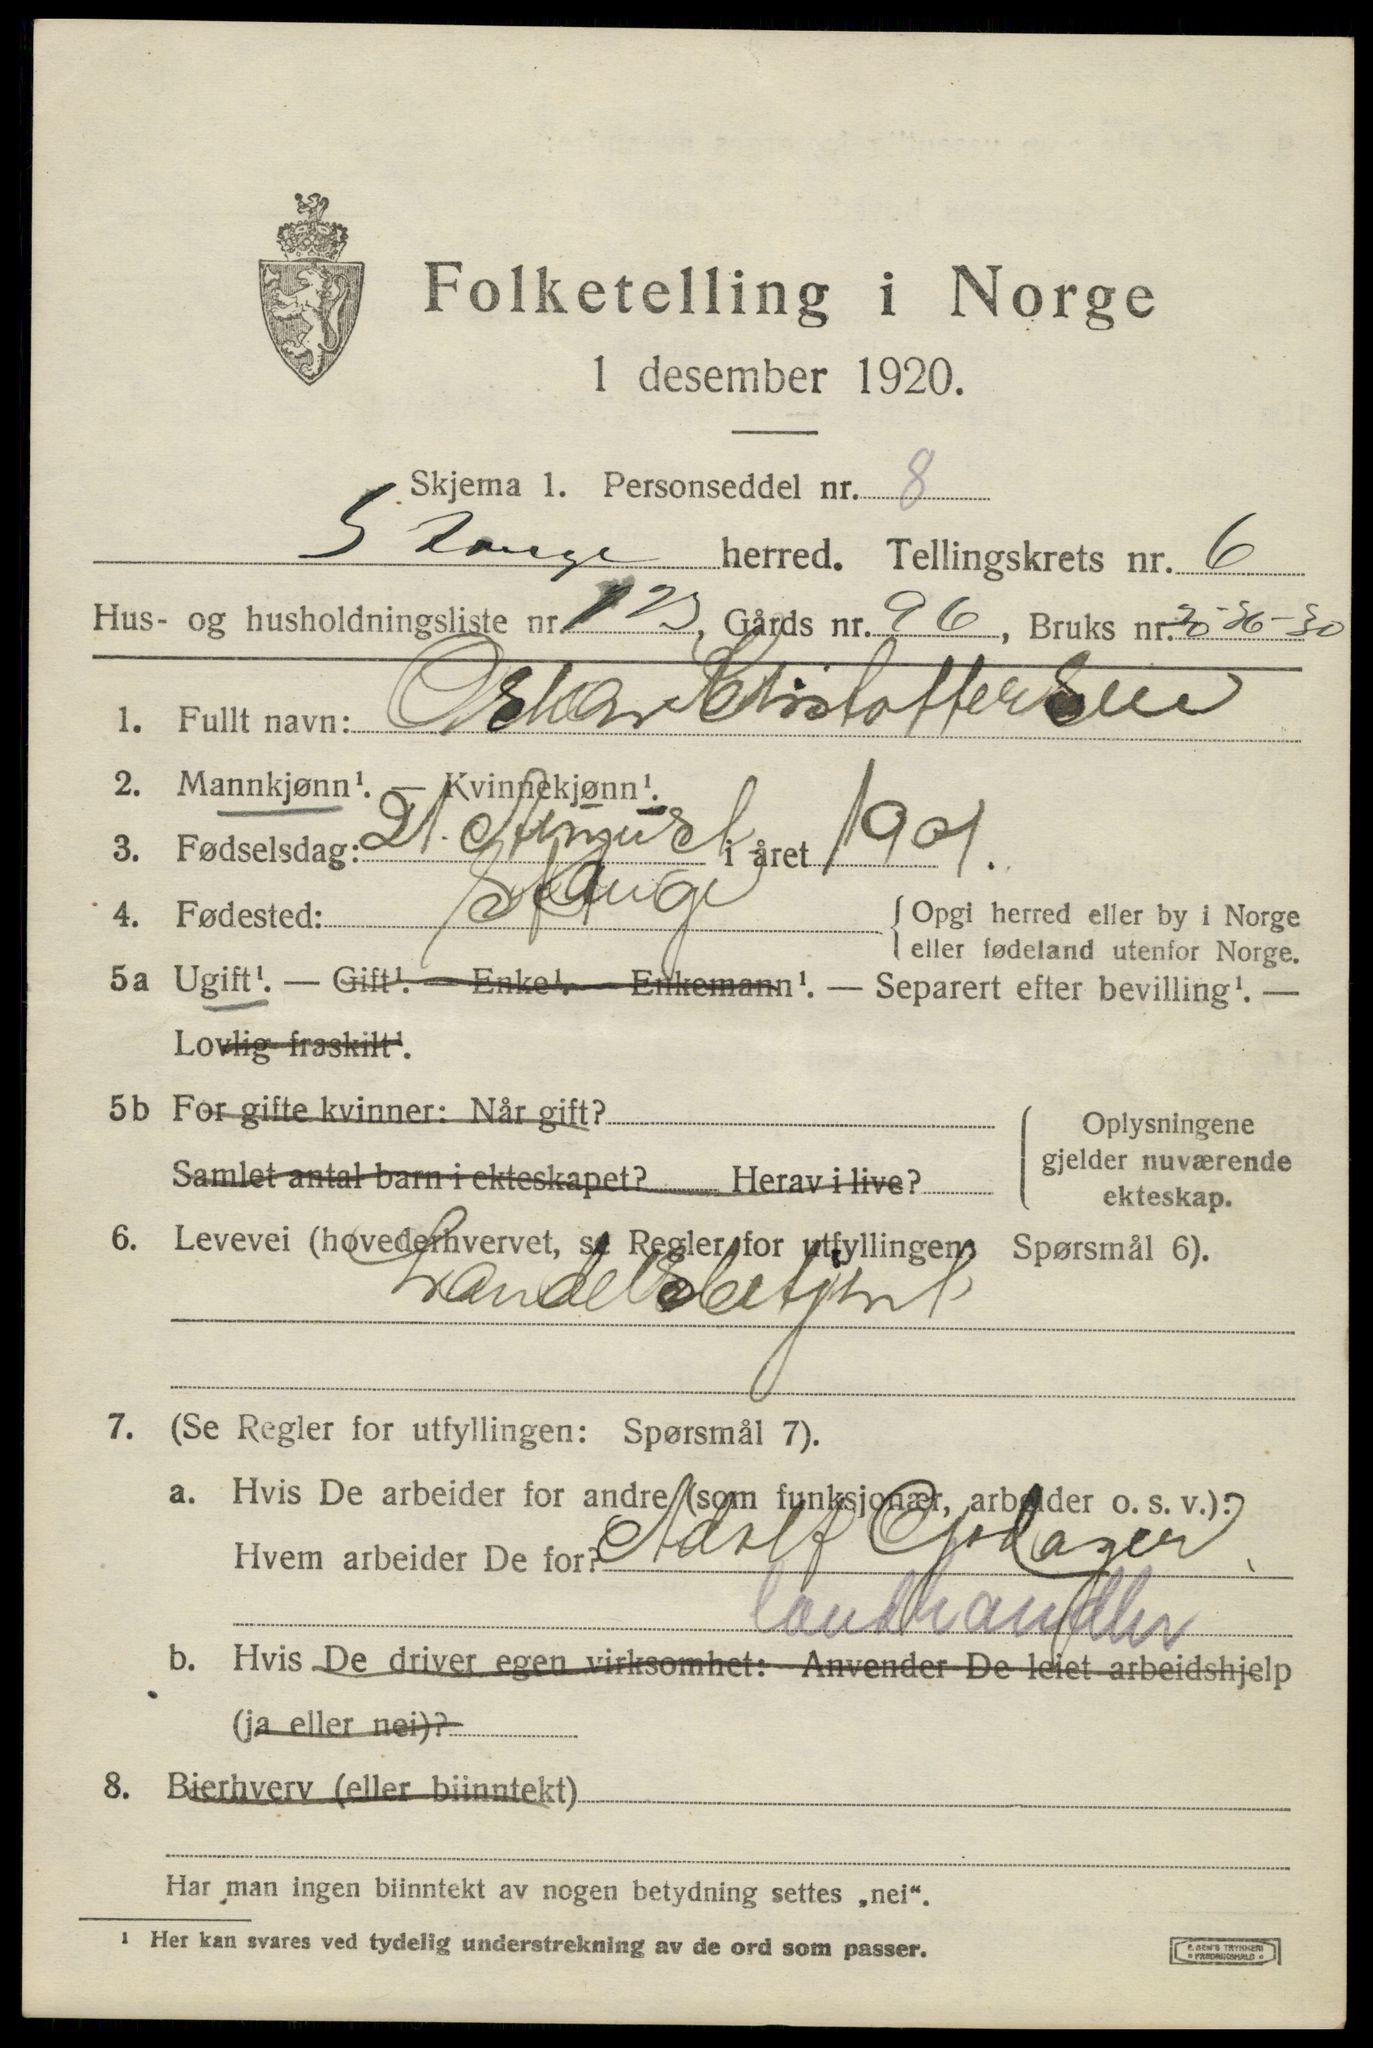 Folketelling i Norge
1 desember 1920.
Skjema 1. Personseddel nr. 8
Stange herred. Tellingskrets nr. 6
Hus- og husholdningsliste nr. 123, Gårds nr. 96, Bruks nr.
1. Fullt navn: Oskar Kristoffersen
2. Mannkjønn¹. — Kvinnekjønn¹.
3. Fødselsdag: 21. i året 1901.
4. Fødested: Stange { Opgi herred eller by i Norge
eller fødeland utenfor Norge.
5a Ugift¹. — Gift¹. — Enke¹. — Enkemann¹. — Separert efter bevilling¹. —
Lovlig fraskilt¹.
5b For gifte kvinner: Når gift?
Samlet antal barn i ekteskapet? Herav i live?
Oplysningene
gjelder nuværende
ekteskap.
6. Levevei (hovederhvervet, se Regler for utfyllingen: Spørsmål 6).
Handelsbetjent
7. (Se Regler for utfyllingen: Spørsmål 7).
a. Hvis De arbeider for andre (som funksjonær, arbeider o. s. v.):
Hvem arbeider De for? Adolf Opdager
landhandler
b. Hvis De driver egen virksomhet: Anvender De leiet arbeidshjelp
(ja eller nei)?
8. Bierhverv (eller biinntekt)
Har man ingen biinntekt av nogen betydning settes „nei“.
¹ Her kan svares ved tydelig understrekning av de ord som passer.
E. SEM'S TRYKKERI
FREDRIKSHALD